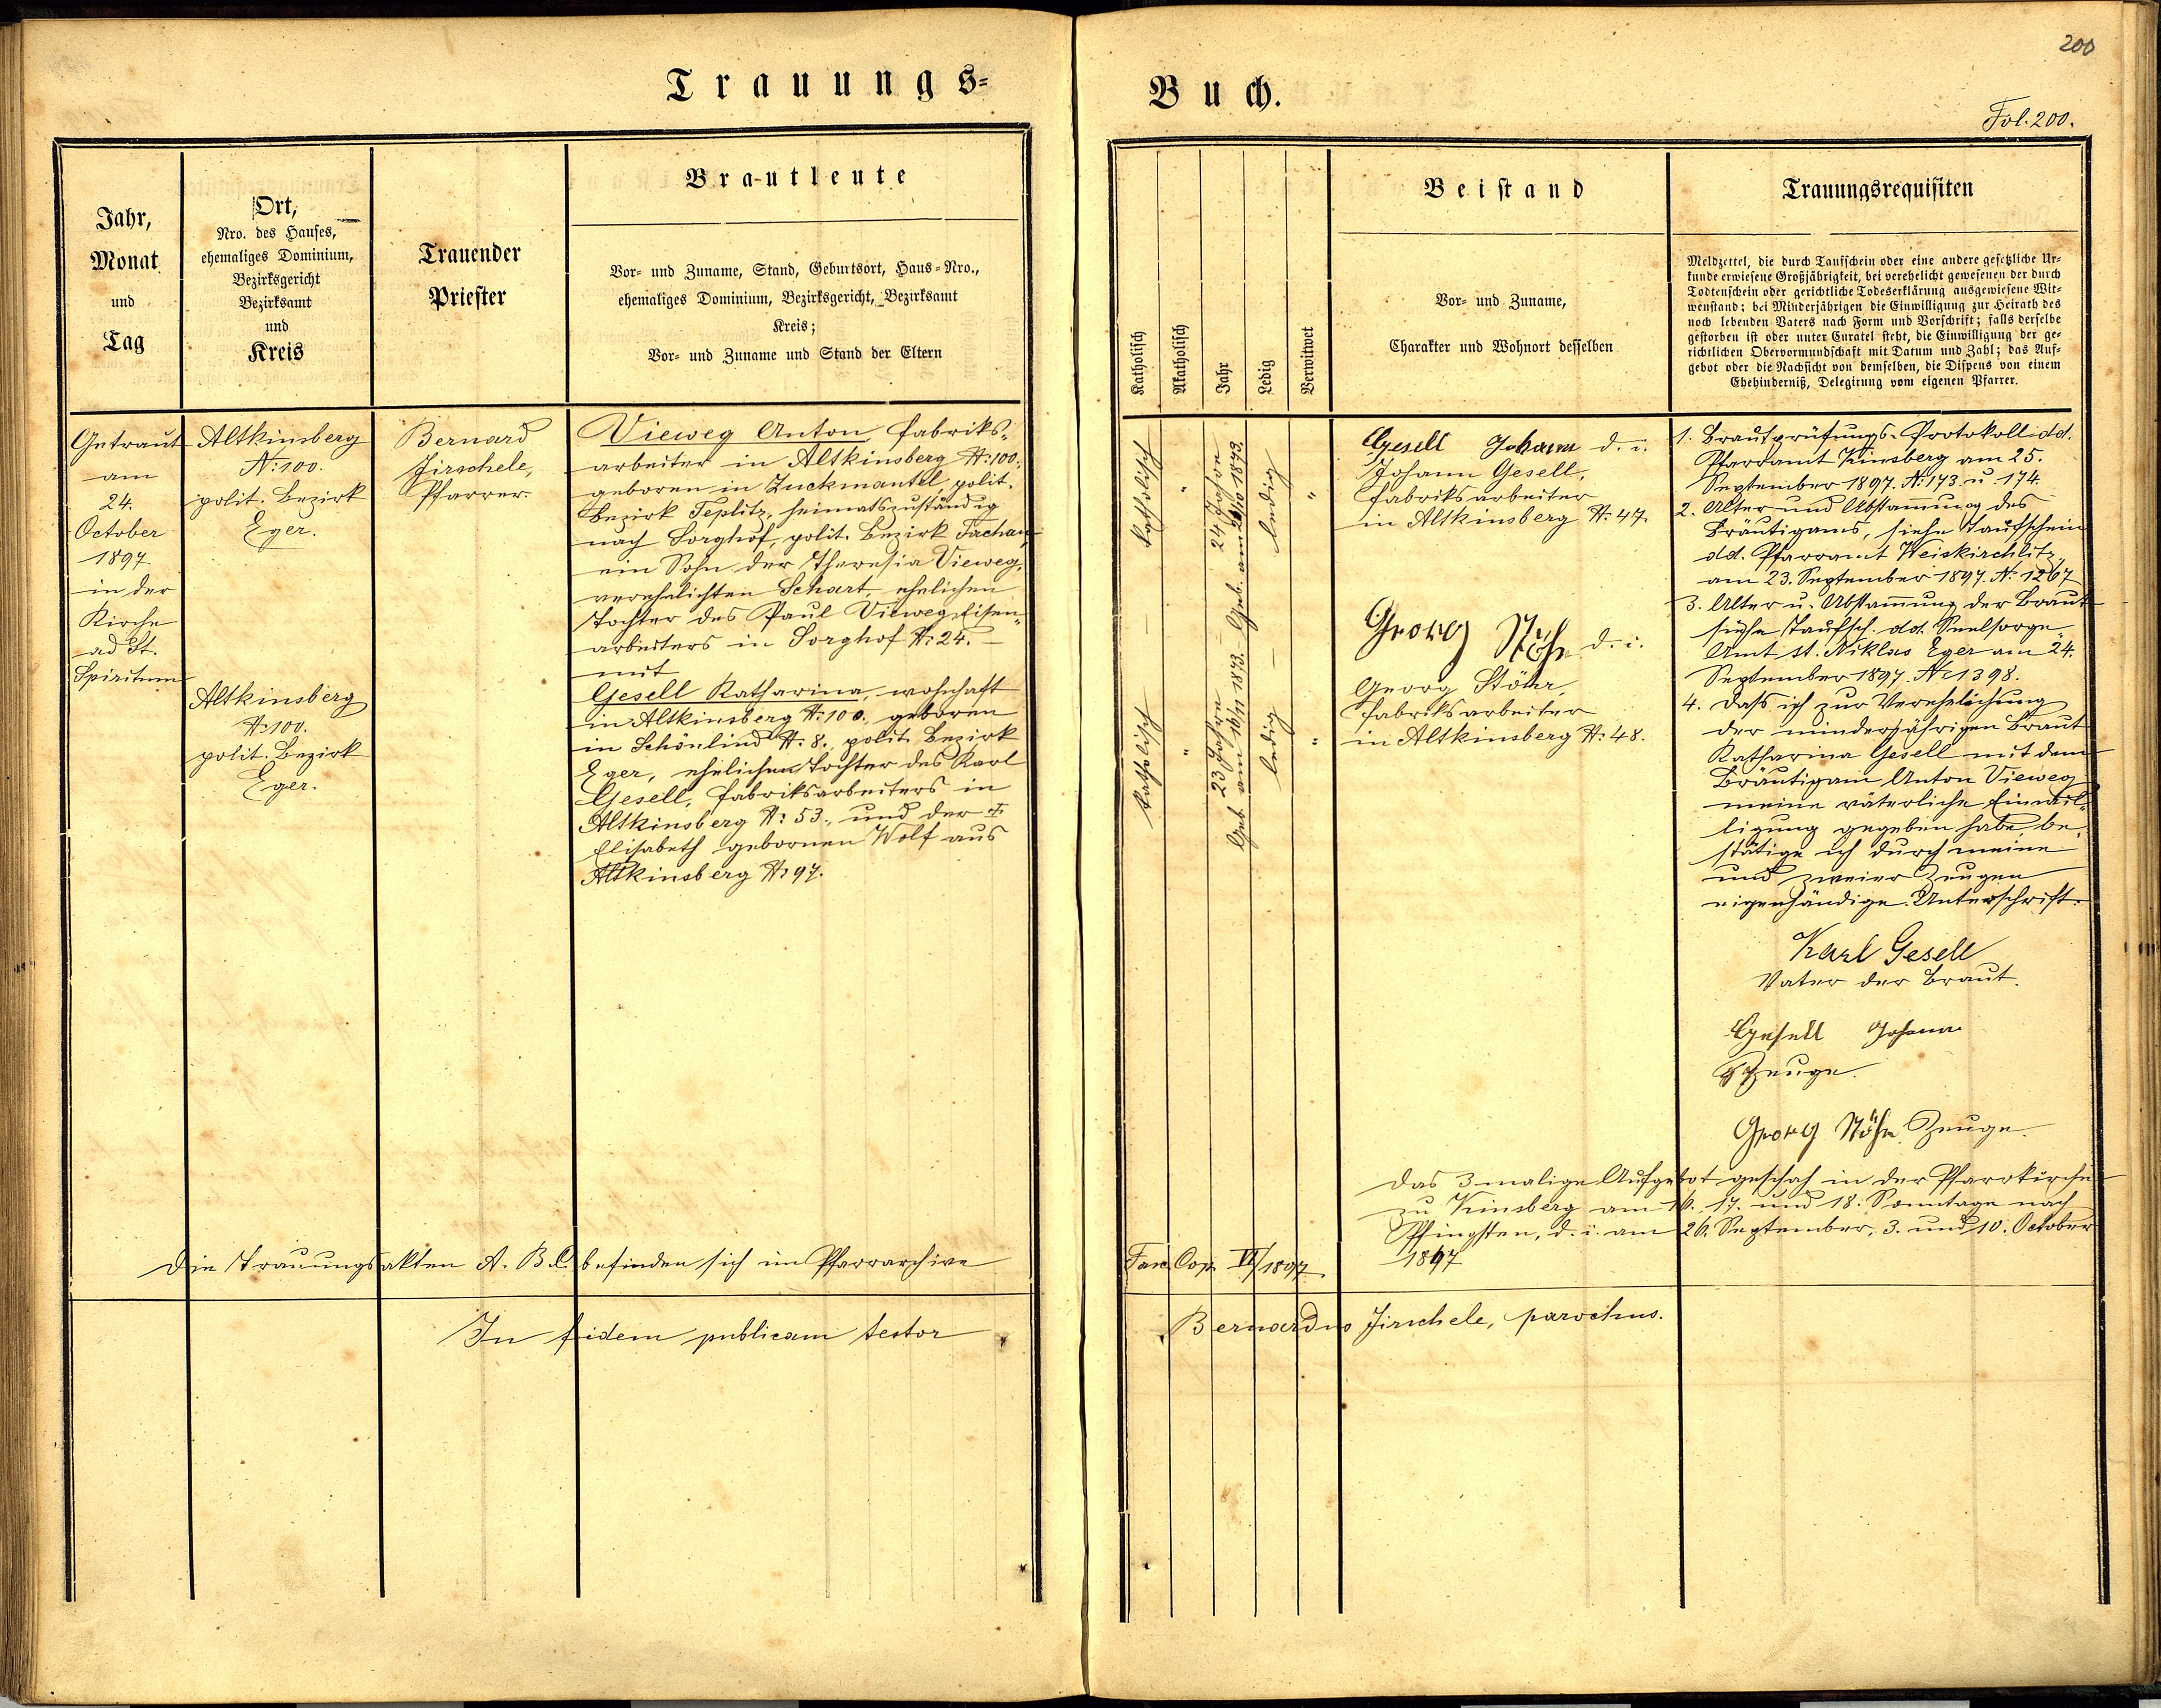 200
Trauungs-
Buch.
Fol. 200.
Jahr,
Monat
und
Tag
Ort,
Nro. des Hauses,
ehemaliges Dominium,
Bezirksgericht
Bezirksamt
und
Kreis
Trauender
Priester
Brautleute
Vor- und Zuname, Stand, Geburtsort, Haus-Nro.,
ehemaliges Dominium, Bezirksgericht, Bezirksamt
Kreis;
Vor- und Zuname und Stand der Eltern
Getraut
am
24.
October
1897
in der
Kirche
ad St.
Spiritum
Altkinsberg
N: 100.
polit. Bezirk
Eger.
Altkinsberg
N: 100.
polit. Bezirk
Eger.
Bernard
Jirschele,
Pfarrer.
Vieweg Anton, Fabriks-
arbeiter in Altkinsberg N: 100.,
geboren in Zuckmantel, polit.
Bezirk Teplitz, heimatszuständig
nach Sorghof, polit. Bezirk Tachau,
ein Sohn der Theresia Vieweg,
verehelichten Schart, ehelichen
Tochter des Paul Vieweg, Eisen-
arbeiters in Sorghof N: 24. —
mit
Gesell Katharina, wohnhaft
in Altkinsberg N: 100., geboren
in Schönlind N: 8., polit. Bezirk
Eger, ehelichen Tochter des Karl
Gesell, Fabriksarbeiters in
Altkinsberg N: 53., und der †
Elisabeth gebornen Wolf aus
Altkinsberg N: 97.
Die Trauungsakten A. B. C. befinden sich im Pfarrarchive
In fidem publicam testor
Katholisch
Akatholisch
Jahr
Ledig
Verwitwet
Beistand
Vor- und Zuname,
Charakter und Wohnort desselben
Trauungsrequisiten
Meldzettel, die durch Taufschein oder eine andere gesetzliche Ur-
kunde erwiesene Großjährigkeit, bei verehelicht gewesenen der durch
Todtenschein oder gerichtliche Todeserklärung ausgewiesene Wit-
wenstand; bei Minderjährigen die Einwilligung zur Heirath des
noch lebenden Vaters nach Form und Vorschrift; falls derselbe
gestorben ist oder unter Curatel steht, die Einwilligung der ge-
richtlichen Obervormundschaft mit Datum und Zahl; das Auf-
gebot oder die Nachsicht von demselben, die Dispens von einem
Ehehinderniß, Delegirung vom eigenen Pfarrer.
katholisch
"
24 Jahre
ledig
"
katholisch
"
23 Jahre
Geb. am 16/11 1873.
ledig
"
Gesell Johann d. i.
Johann Gesell,
Fabriksarbeiter
in Altkinsberg N: 47.
Georg Stöhr d. i.
Georg Stöhr,
Fabriksarbeiter
in Altkinsberg N: 48.
1. Brautprüfungs-Protokoll dd.
Pfarramt Kinsberg am 25.
September 1897. N: 173 u 174.
2. Alter und Abstammung des
Bräutigams, siehe Taufschein
dd. Pfarramt Weiskirchlitz
am 23. September 1897. N: 1267
3. Alter u. Abstammung der Braut
siehe Taufsch. dd. Seelsorge-
Amt St. Niklas Eger am 24.
September 1897. N: 1398.
4. Daß ich zur Verehelichung
der minderjährigen Braut
Katharina Gesell mit dem
Bräutigam Anton Vieweg
meine väterliche Einwil-
ligung gegeben habe, be-
stätige ich durch meine
und zweier Zeugen
eigenhändige Unterschrift.
Karl Gesell
Vater der Braut.
Gesell Johann
Zeuge.
Georg Stöhr Zeuge.
Das 3malige Aufgebot geschah in der Pfarrkirche
zu Kinsberg am 16. 17. und 18. Sonntage nach
Pfingsten, d. i. am 26. September, 3. und 10. October
1897
Fasc. Cop. VI/1897.
Bernardus Jirschele, parochus.